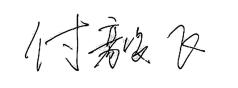 付毅飞